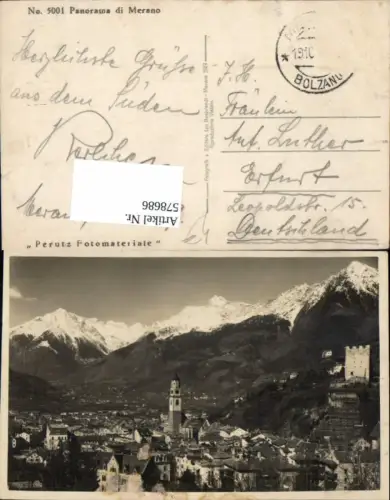 No. 5001 Panorama di Merano
Herzlichste Grüsse
aus dem Süden
Meran
I. H.
Fräulein
Ant. Luther
Erfurt
Leopoldstr. 15.
Deutschland
BOLZANO
Artikel Nr.
578686
„Perutz Fotomateriale"